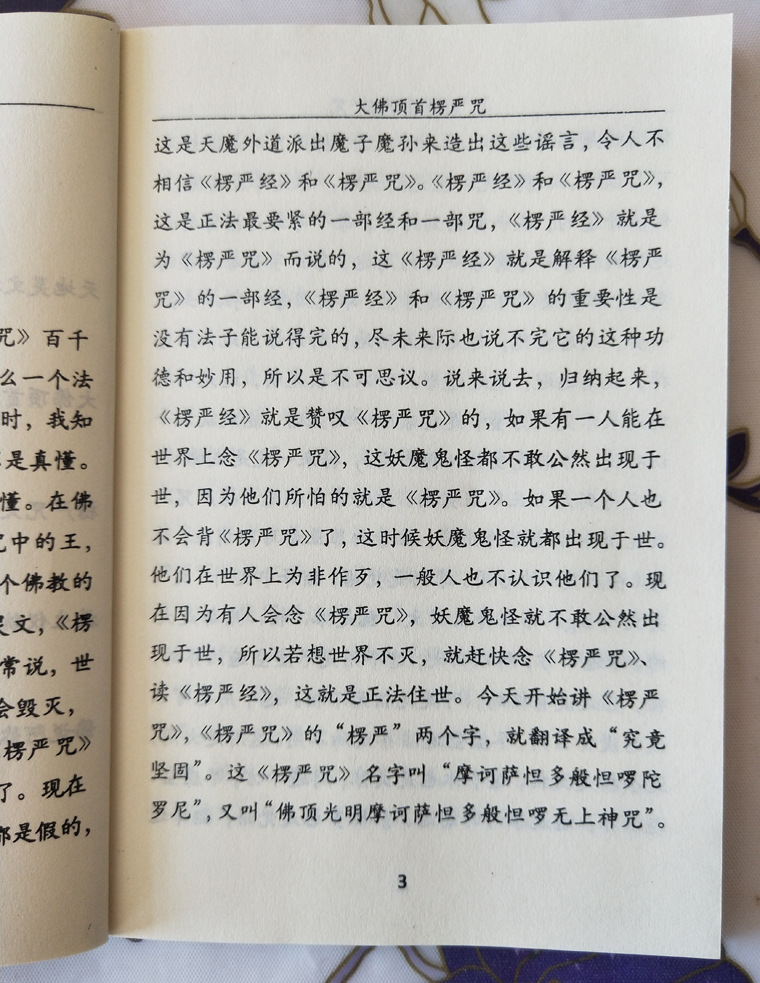 咒》百千
么一个法
时，我知
是真懂。
懂。在佛
咒中的王，
个佛教的
灵文，《楞
常说，世
会毁灭，
楞严咒》
了。现在
都是假的，
大佛顶首楞严咒
这是天魔外道派出魔子魔孙来造出这些谣言，令人不
相信《楞严经》和《楞严咒》。《楞严经》和《楞严咒》，
这是正法最要紧的一部经和一部咒，《楞严经》就是
为《楞严咒》而说的，这《楞严经》就是解释《楞严
咒》的一部经，《楞严经》和《楞严咒》的重要性是
没有法子能说得完的，尽未来际也说不完它的这种功
德和妙用，所以是不可思议。说来说去，归纳起来，
《楞严经》就是赞叹《楞严咒》的，如果有一人能在
世界上念《楞严咒》，这妖魔鬼怪都不敢公然出现于
世，因为他们所怕的就是《楞严咒》。如果一个人也
不会背《楞严咒》了，这时候妖魔鬼怪就都出现于世。
他们在世界上为非作歹，一般人也不认识他们了。现
在因为有人会念《楞严咒》，妖魔鬼怪就不敢公然出
现于世，所以若想世界不灭，就赶快念《楞严咒》、
读《楞严经》，这就是正法住世。今天开始讲《楞严
咒》，《楞严咒》的“楞严”两个字，就翻译成“究竟
坚固”。这《楞严咒》名字叫“摩诃萨怛多般怛啰陀
罗尼”，又叫“佛顶光明摩诃萨怛多般怛啰无上神咒”。
3